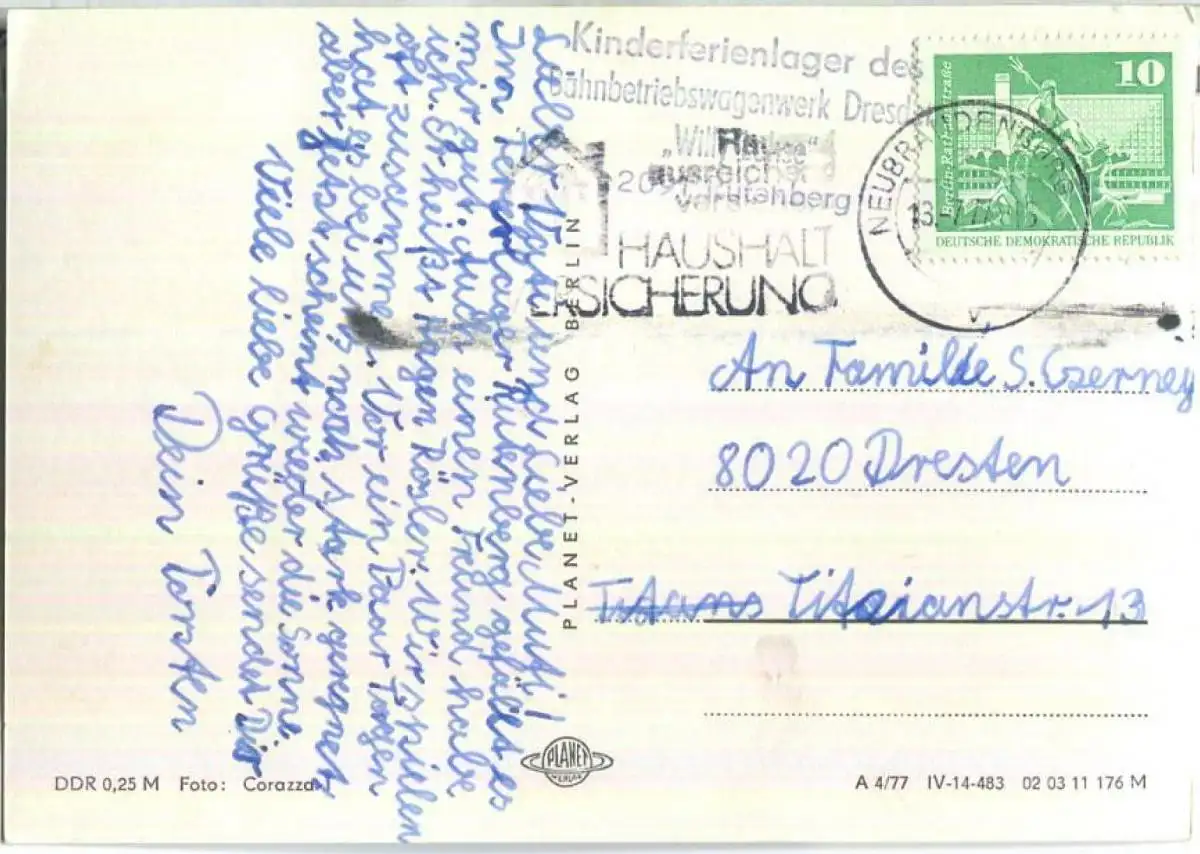 Lieber Vati und Liebe Mutti!
Im Ferienlager Rutenberg gefällt es
mir gut. Auch einen Freund habe
ich. Er heißt Hagen Rösler. Wir spielen
oft zusammen. Vor ein Paar Tagen
hat es bei uns noch stark geregnet
aber jetzt scheint wieder die Sonne.
Viele liebe Grüße sendet Dir
Dein Torsten
Kinderferienlager des
Bahnbetriebswagenwerk Dresden
"Willi
ausreichend
2091 Rutenberg
HAUSHALT
VERSICHERUNG
10
Berlin-Rathausstraße
DEUTSCHE DEMOKRATISCHE REPUBLIK
NEUBRANDENBURG
An Familie S. Czerney
8020 Dresten
Titans Titzianstr. 13
PLANET-VERLAG BERLIN
PLANET
VERLAG
DDR 0,25 M Foto: Corazza
A 4/77 IV-14-483 02 03 11 176 M